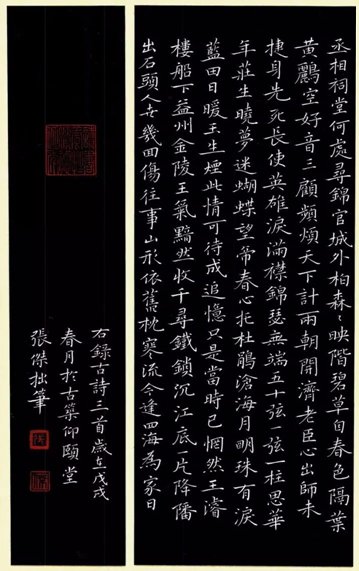 丞相祠堂何處尋錦官城外柏森〻映階碧草自春色隔葉
黃鸝空好音三顧頻煩天下計兩朝開濟老臣心出師未
捷身先死長使英雄淚滿襟錦瑟無端五十弦一弦一柱思華
年莊生曉夢迷蝴蝶望帝春心托杜鵑滄海月明珠有淚
藍田日暖玉生煙此情可待成追憶只是當時已惘然王濬
樓船下益州金陵王氣黯然收千尋鐵鎖沉江底一片降旛
出石頭人世幾回傷往事山形依舊枕寒流今逢四海為家日
右錄古詩三首歲在戊戌
春月於古仰頤堂
張傑拙筆